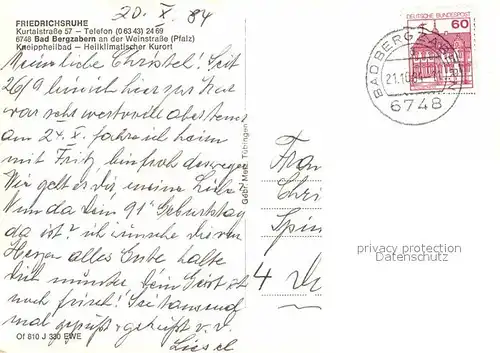 20. X. 84
FRIEDRICHSRUHE
Kurtalstraße 57 – Telefon (0 63 43) 24 69
6748 Bad Bergzabern an der Weinstraße (Pfalz)
Kneippheilbad – Heilklimatischer Kurort
Meine liebe Christel! Seit
26/9 bin ich hier zur Kur
war sehr wertvoll aber
am 24. X. fahre ich heim
mit Fritz bin froh deswegen
Wie geht es dir meine Liebe
Wenn da Dein 91 Geburtstag
da ist? ich wünsche dir von
Herzen alles Gute halte
Dich munter, Dein Geist ist
noch frisch! Sei tausend
mal gegrüßt + geküßt v. d.
Liesel
Of 810 J 330 EWE
Gebr. Metz, Tübingen
DEUTSCHE BUNDESPOST
60
BAD BERGZABERN
21.10.84
6748
Frau
4
privacy protection
Datenschutz